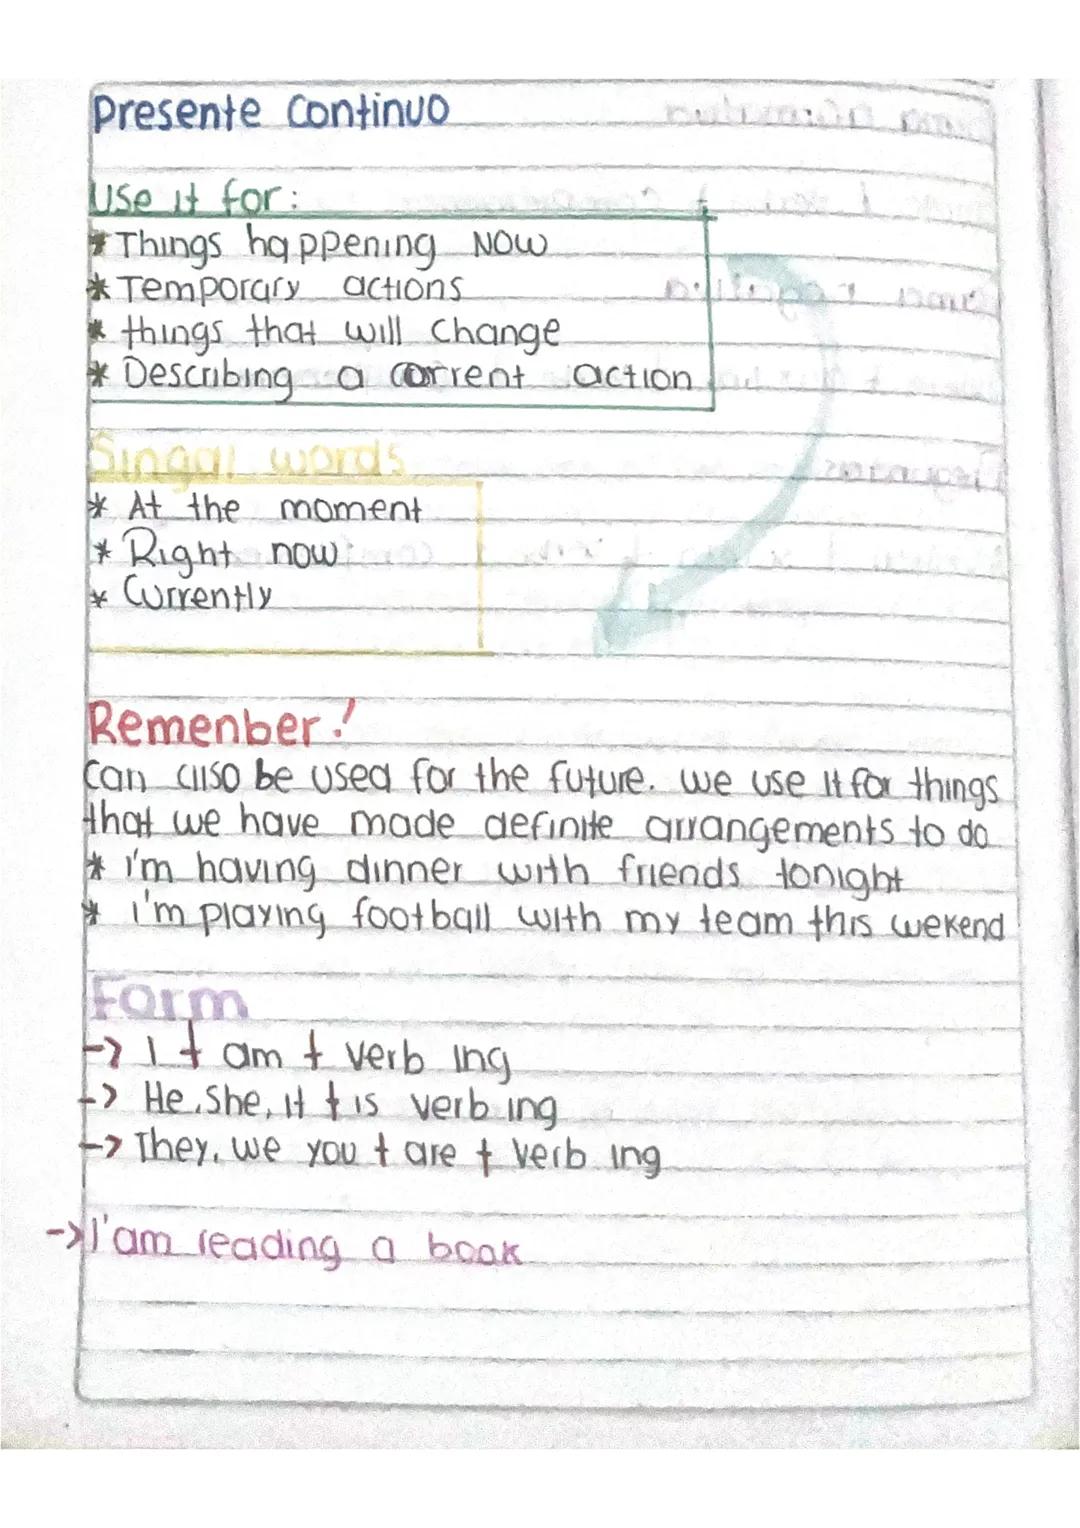 Presente Continuo
Use it for:
* Things happening NOW
* Temporary actions
* things that will change
* Describing a corrent action
Singal words
* At the moment
* Right now
* Currently
Remenber!
Can also be used for the future. We use it for things
that we have made definite arrangements to do
* i'm having dinner with friends tonight
* i'm playing football with my team this wekend
Form
-> I + am + verb ing
-> He, She, it + is verb ing
-> They, we you + are + verb ing
-> I'am reading a book